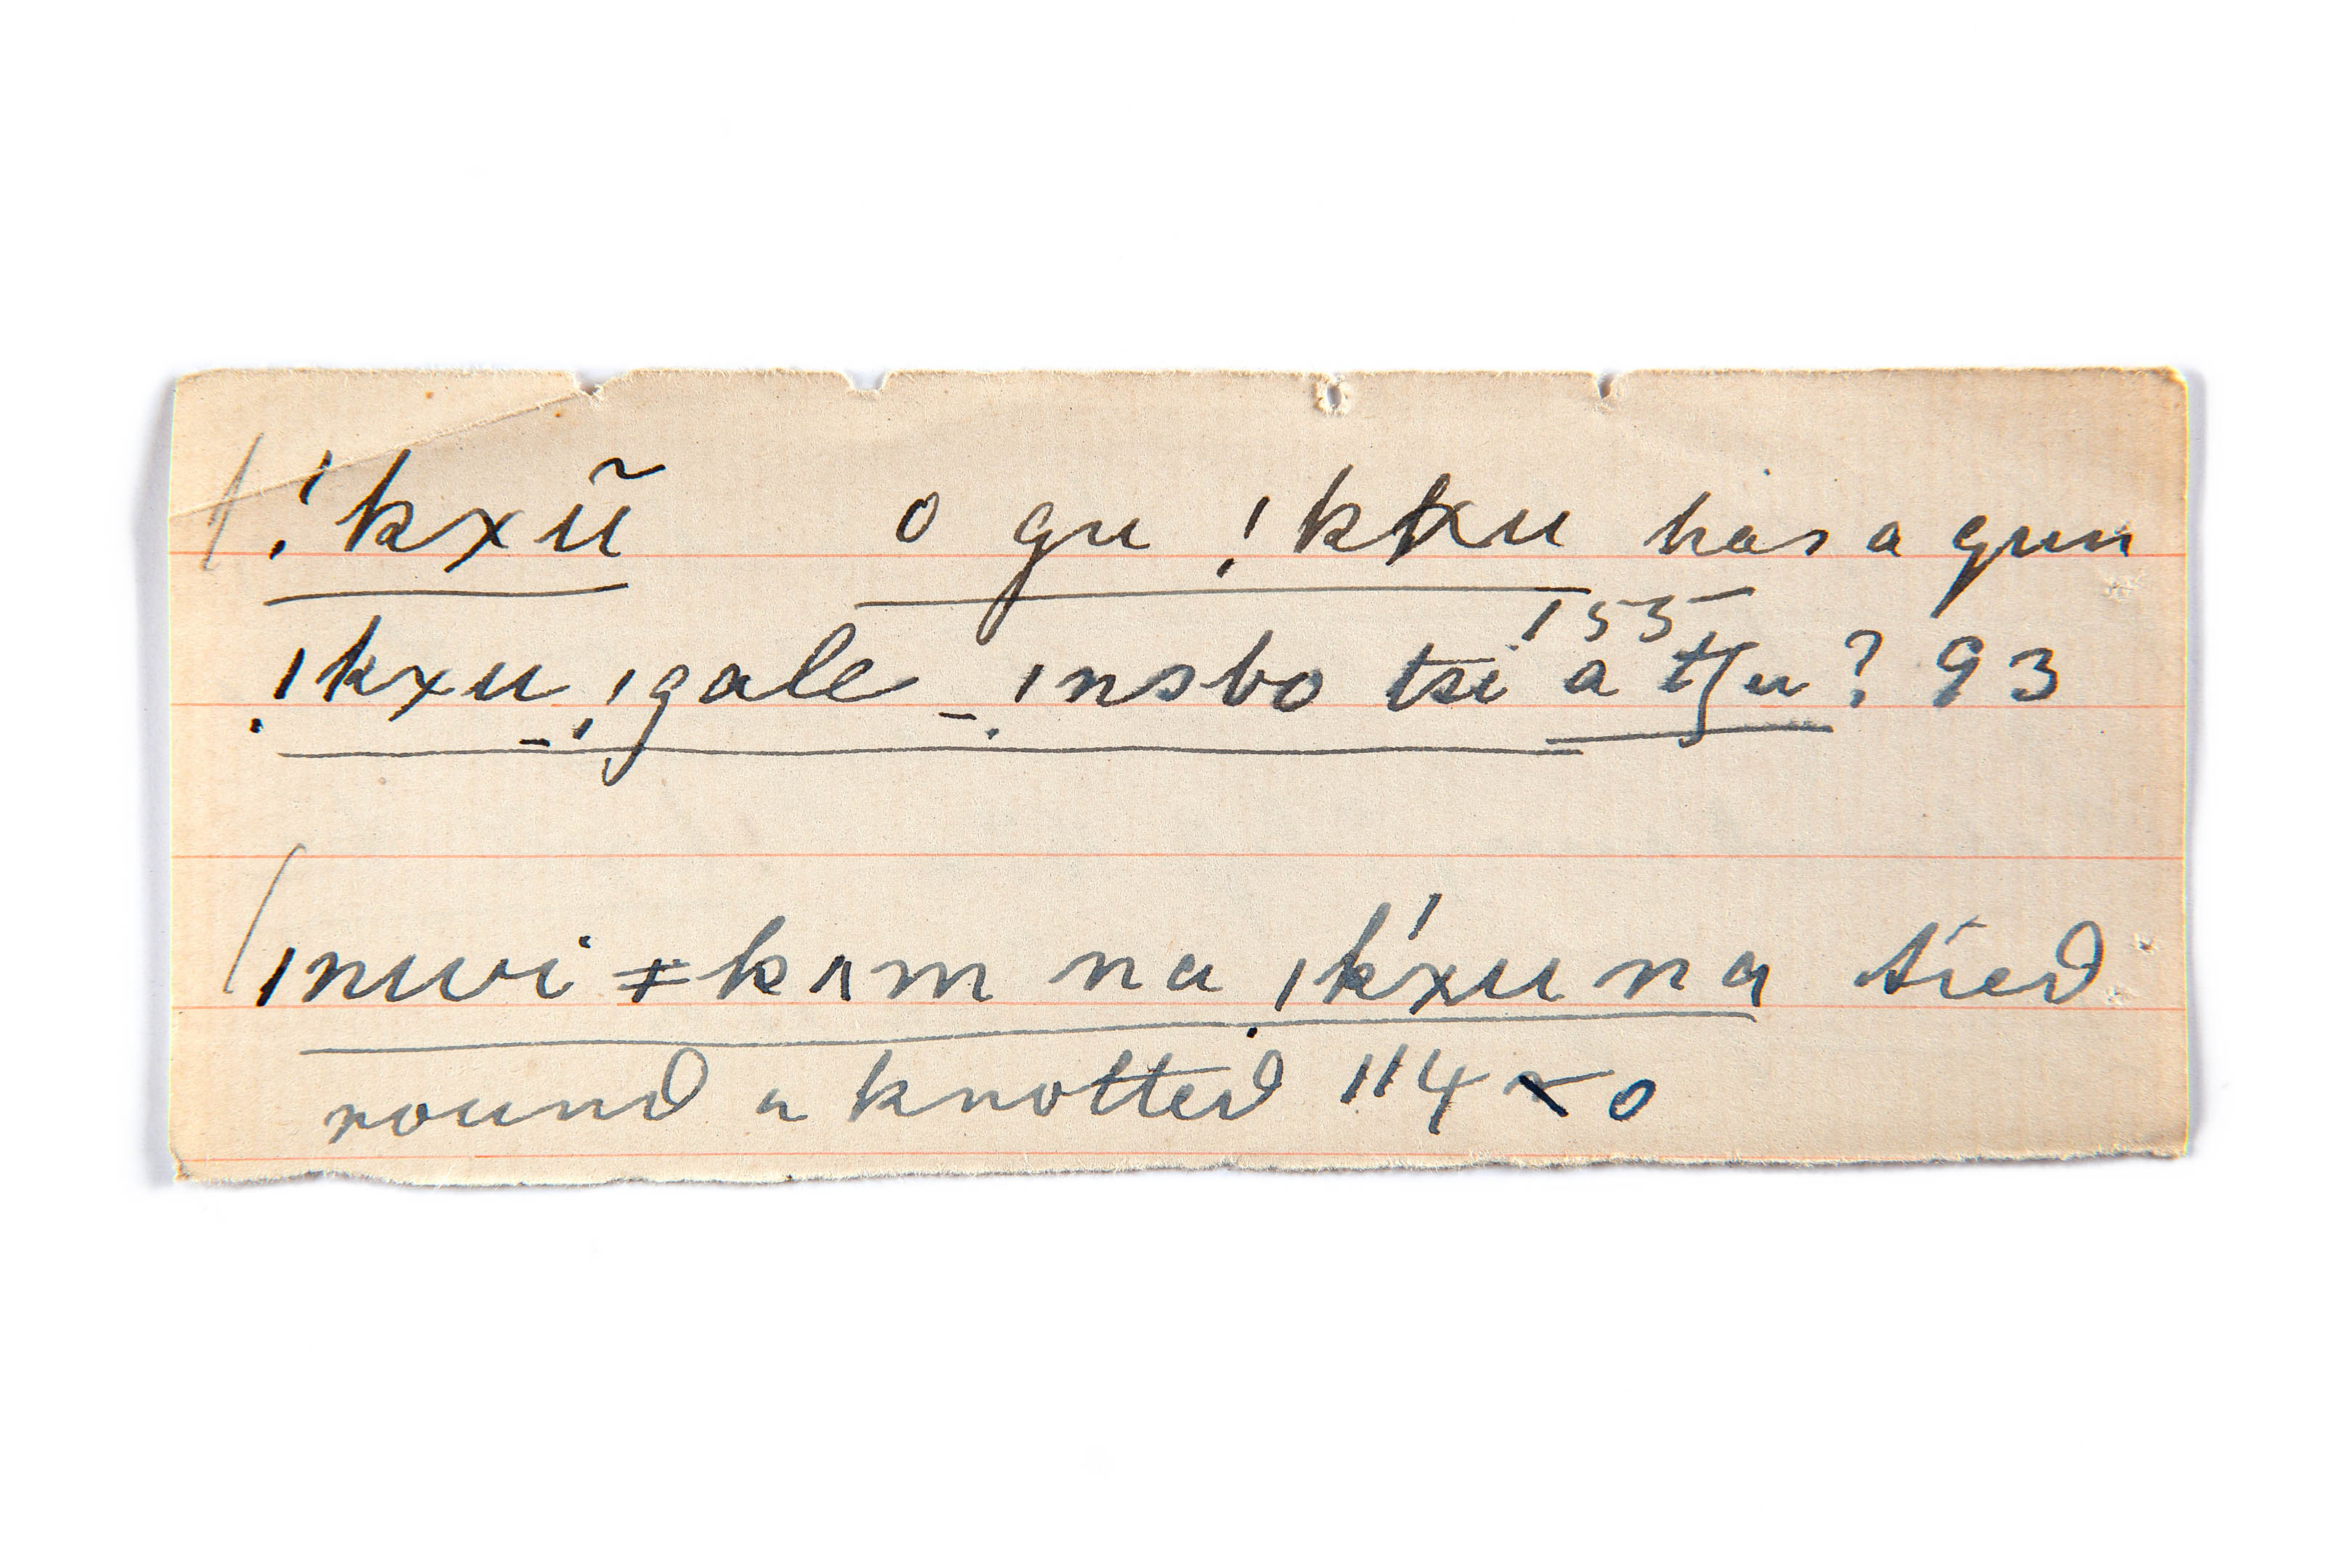 !kxũ o gu !kxu has a gun
155
!kxu !gale - !nsbo tsi a tʃu ? 93
ǀnwi ǂkʌm na !k'xu na tied
round a knotted 114 x o